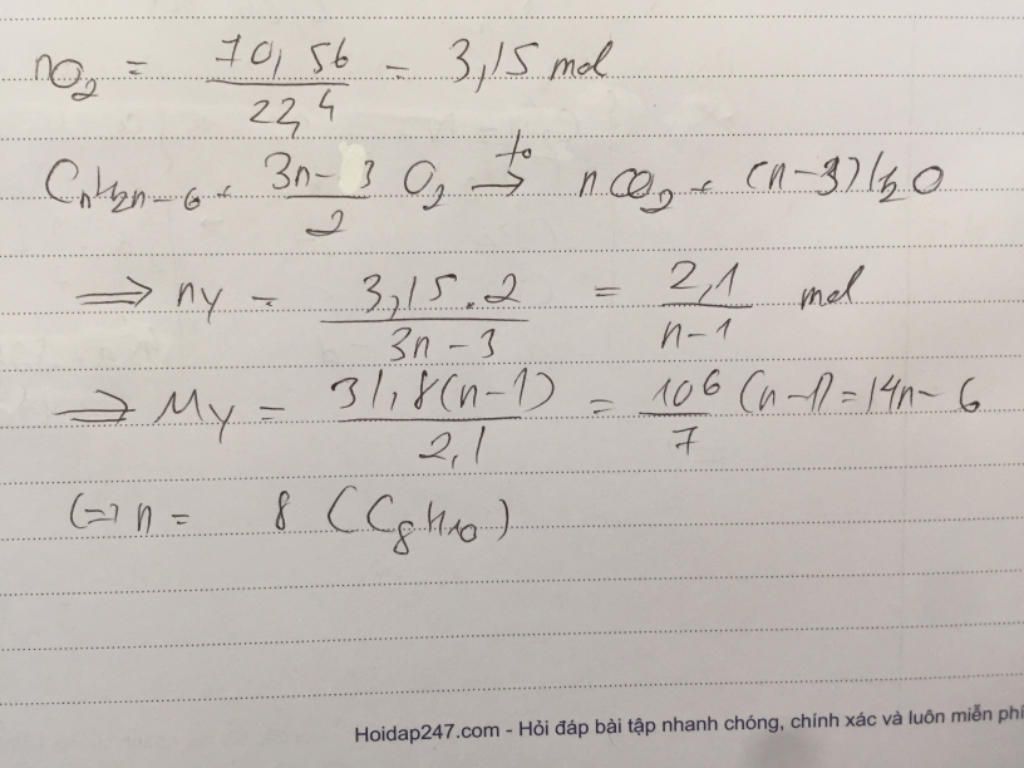 nO₂ = 70,56/22,4 = 3,15 mol
CₙH₂ₙ₋₆ + (3n-3)/2 O₂ →(t°) nCO₂ + (n-3)H₂O
⟹ nY = (3,15.2)/(3n-3) = 2,1/(n-1) mol
⟹ MY = 31,8(n-1)/2,1 = 106/7 (n-1) = 14n-6
(=) n = 8 (C₈H₁₀)
Hoidap247.com - Hỏi đáp bài tập nhanh chóng, chính xác và luôn miễn phí